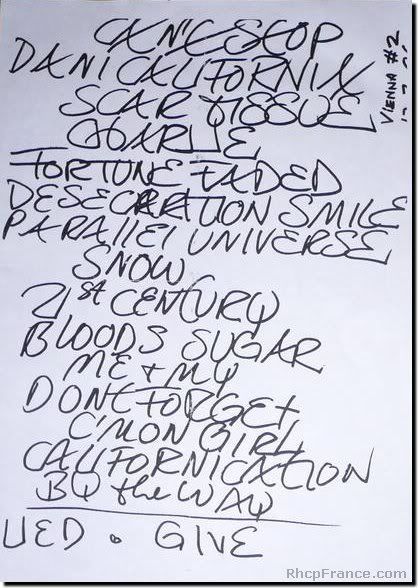 CAN'T STOP
DANI CALIFORNIA
SCAR TISSUE
CHARLIE
FORTUNE FADED
DESECRATION SMILE
PARALLEl UNIVERSE
SNOW
21st CENTURY
BLOODS SUGAR
ME + MY
DONt FORGEt
C'MON GIRL
CALIFORNICATION
BY the WAY
UED . GIVE
VIENNA #2
RhcpFrance.com